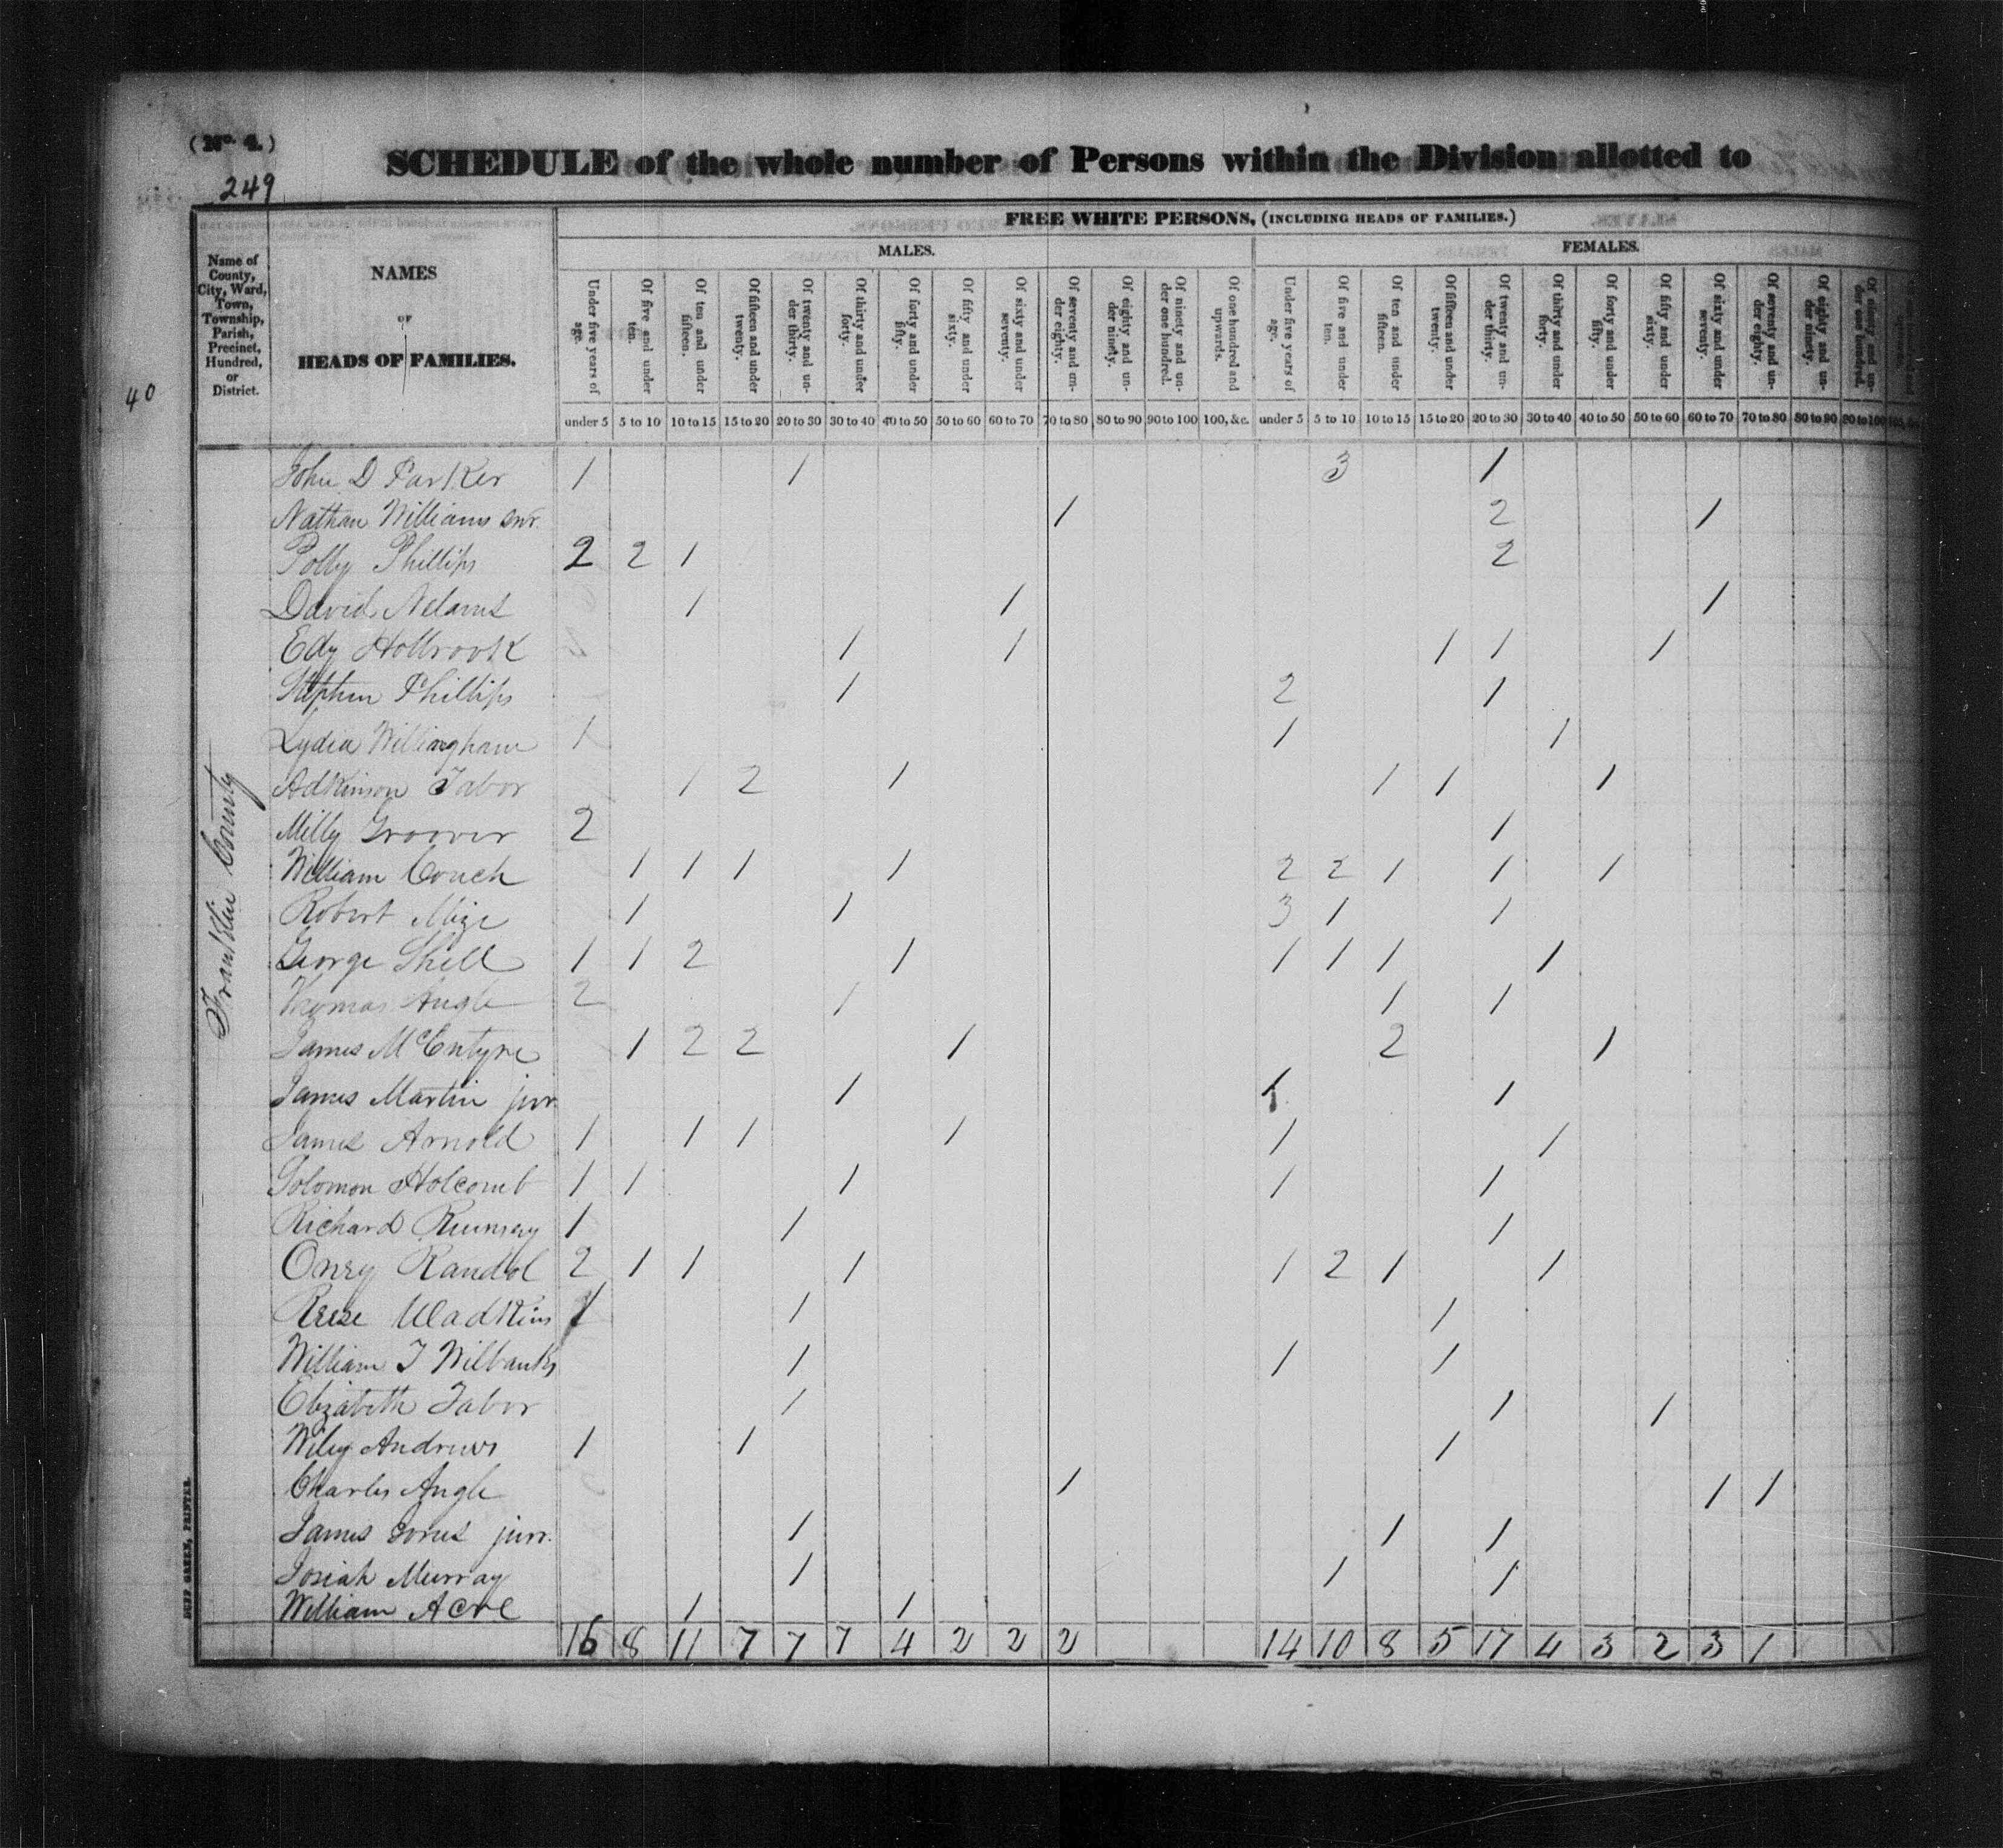 (No. 4.)
SCHEDULE of the whole number of Persons within the Division allotted to
249
FREE WHITE PERSONS, (INCLUDING HEADS OF FAMILIES.)
MALES. FEMALES.
Name of County, City, Ward, Town, Township, Parish, Precinct, Hundred, or District.
NAMES
OF
HEADS OF FAMILIES.
Under five years of age. Of five and under ten. Of ten and under fifteen. Of fifteen and under twenty. Of twenty and under thirty. Of thirty and under forty. Of forty and under fifty. Of fifty and under sixty. Of sixty and under seventy. Of seventy and under eighty. Of eighty and under ninety. Of ninety and under one hundred. Of one hundred and upwards. Under five years of age. Of five and under ten. Of ten and under fifteen. Of fifteen and under twenty. Of twenty and under thirty. Of thirty and under forty. Of forty and under fifty. Of fifty and under sixty. Of sixty and under seventy. Of seventy and under eighty. Of eighty and under ninety. Of ninety and under one hundred.
40
under 5 5 to 10 10 to 15 15 to 20 20 to 30 30 to 40 40 to 50 50 to 60 60 to 70 70 to 80 80 to 90 90 to 100 100, &c. under 5 5 to 10 10 to 15 15 to 20 20 to 30 30 to 40 40 to 50 50 to 60 60 to 70 70 to 80 80 to 90 90 to 100
Franklin County
John D Parker 1 1 3 1
Nathan Williams snr. 1 2 1
Polly Phillips 2 2 1 2
David Nelams 1 1 1
Edy Holbrook 1 1 1 1 1
Stephen Phillips 1 2 1
Lydia Willingham 1 1 1
Adkinson Tabor 1 2 1 1 1 1
Milly Groover 2 1
William Couch 1 1 1 1 2 2 1 1 1
Robert Mize 1 1 3 1 1
George Shell 1 1 2 1 1 1 1 1
Thomas Angle 2 1 1 1
James McEntyre 1 2 2 1 2 1
James Martin junr. 1 1 1
James Arnold 1 1 1 1 1 1
Solomon Holcomb 1 1 1 1 1
Richard Rumsey 1 1 1
Onry Randol 2 1 1 1 1 2 1 1
Reese Wadkins 1 1 1
William T Wilbanks 1 1 1
Elizabeth Tabor 1 1 1
Wiley Andrews 1 1 1
Charles Angle 1 1 1
James Jones junr. 1 1 1
Josiah Murray 1 1 1
William Acre 1 1
16 8 11 7 7 7 4 2 2 2 14 10 8 5 17 4 3 2 3 1
DUFF GREEN, PRINTER.